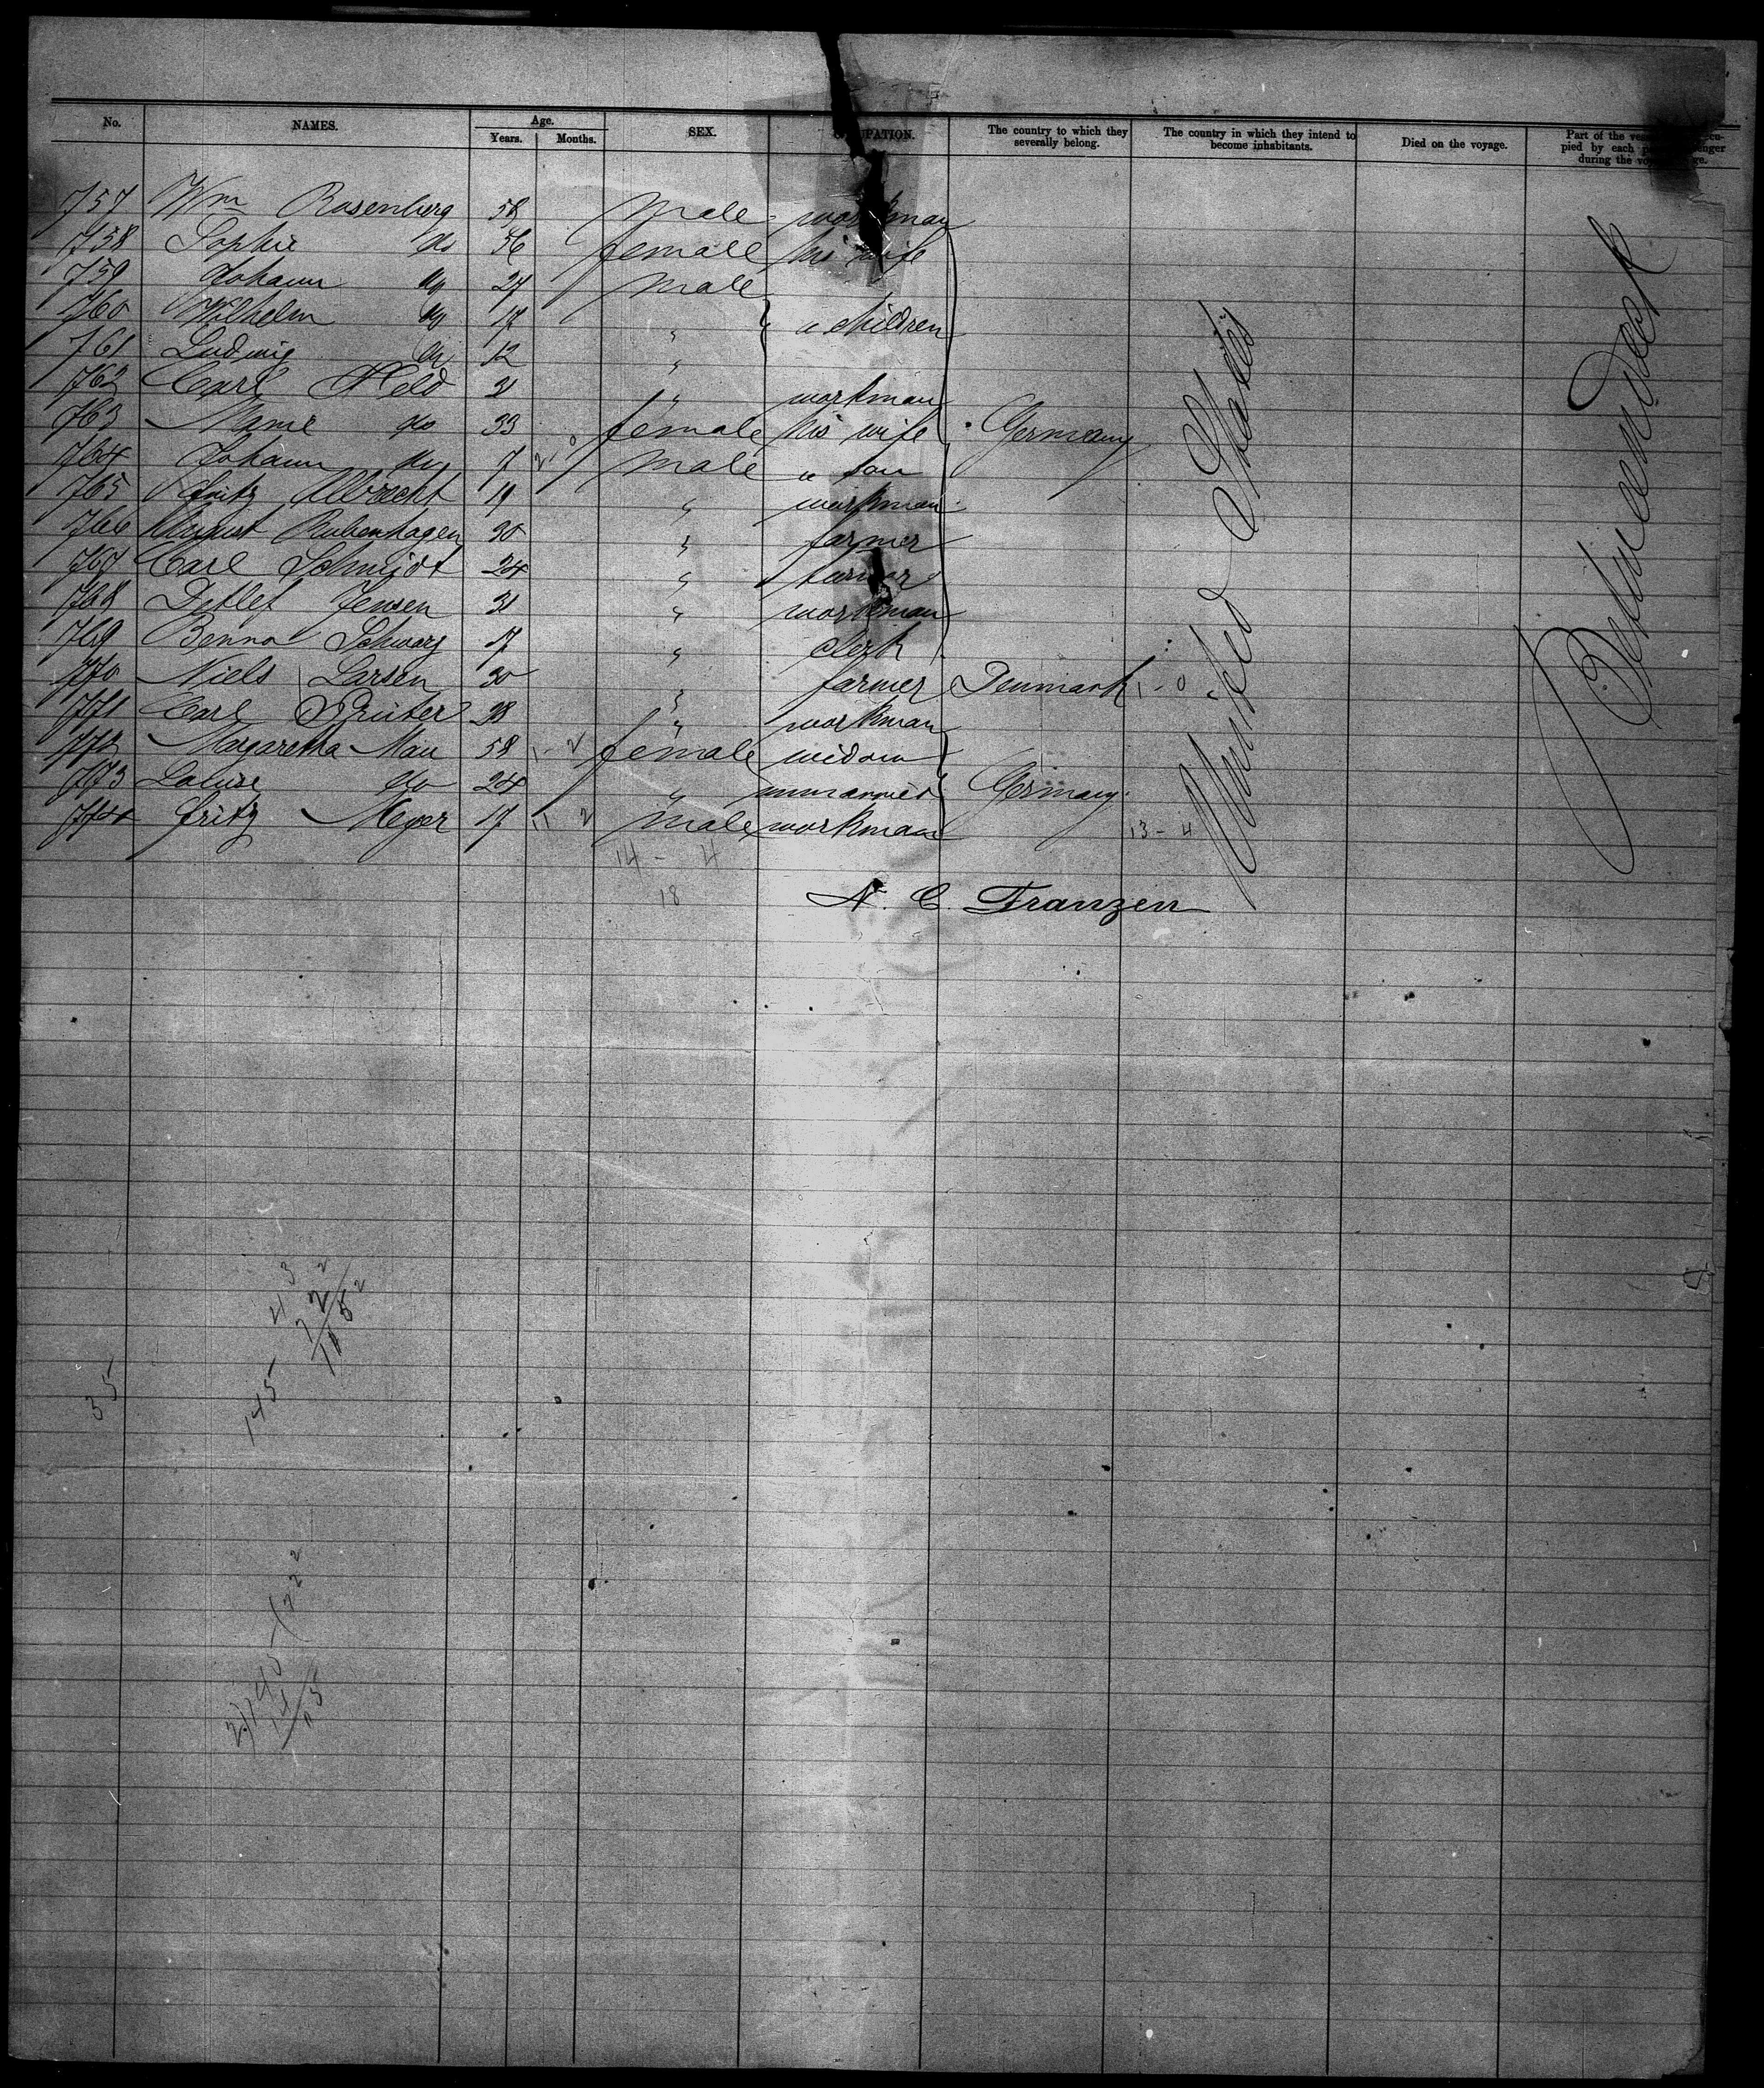 No. NAMES. Age. Years. Months. SEX. OCCUPATION. The country to which they severally belong. The country in which they intend to become inhabitants. Died on the voyage. Part of the vessel occupied by each passenger during the voyage.
757 Wm Rosenberg 58 male workman
758 Sophie do 56 female his wife
759 Johann do 27 male
760 Wilhelm do 17 " " children
761 Ludwig do 12 "
762 Carl Held 31 " workman
763 do 33 female his wife Germany
764 Johann do 7 male " son
765 Fritz Albrecht 19 " workman
766 August Rubenhagen 30 " farmer
767 Carl Schmidt 24 " farmer
768 Detlef Jensen 31 " workman
769 Benno Schwarz 17 " clerk
770 Niels Larsen 30 " farmer Denmark 1 - 0
771 Carl Prüter 28 " workman
772 Margaretha Mau 58 1 - 2 female widow
773 Louise do 24 " unmarried Germany
774 Fritz Meyer 17 11 2 male workman 13 - 4
United States
Between deck
14 - 4
18
N. C. Franzen
35
145